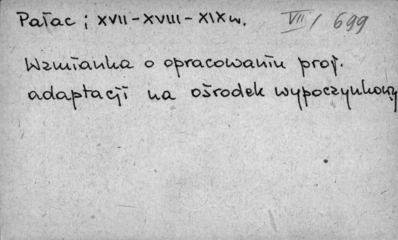 Pałac; XVII-XVIII-XIX w. VII/699
Wzmianka o opracowaniu proj.
adaptacji na ośrodek wypoczynkowy